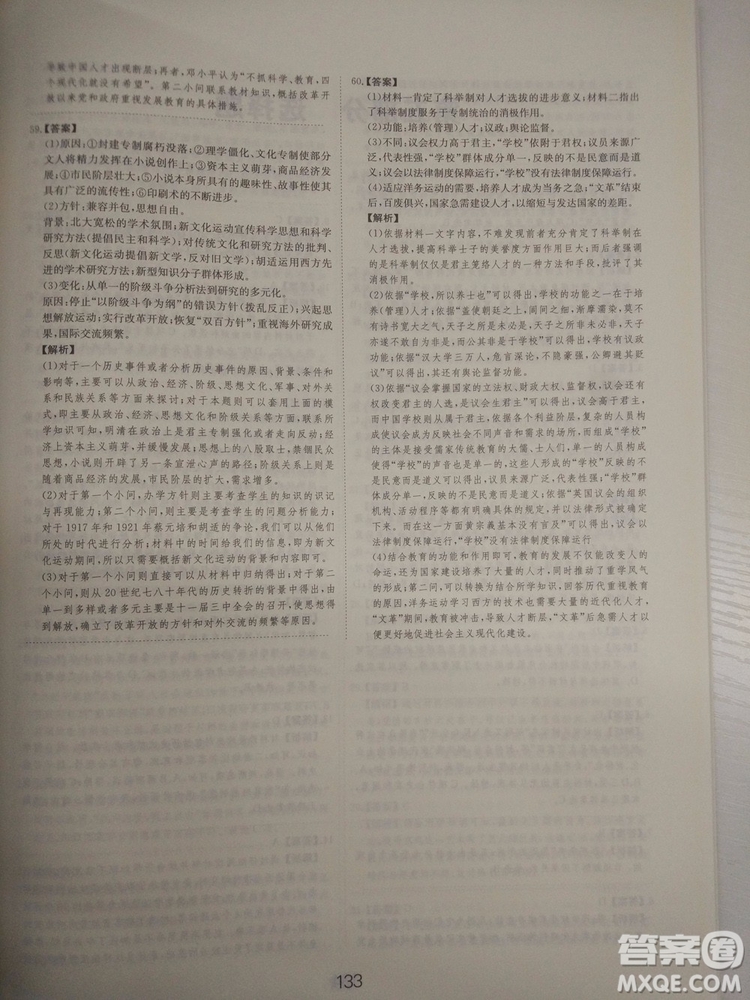 导致中国人才出现断层；再者，邓小平认为“不抓科学、教育，四
个现代化就没有希望”。第二小问联系教材知识，概括改革开
放以来党和政府重视发展教育的具体措施。
59.【答案】
(1)原因：①封建专制腐朽没落；②理学僵化、文化专制使部分
文人将精力发挥在小说创作上；③资本主义萌芽，商品经济发
展；④市民阶层壮大；⑤小说本身所具有的趣味性、故事性使其
具有广泛的流传性；⑥印刷术的不断进步。
(2)方针：兼容并包，思想自由。
背景：北大宽松的学术氛围；新文化运动宣传科学思想和科学
研究方法（提倡民主和科学）；对传统文化和研究方法的批判、
反思（新文化运动提倡新文学，反对旧文学）；胡适运用西方先
进的学术研究方法；新型知识分子群体形成。
(3)变化：从单一的阶级斗争分析法到研究的多元化。
原因：停止“以阶级斗争为纲”的错误方针（拨乱反正）；兴起思
想解放运动；实行改革开放；恢复“双百方针”；重视海外研究成
果，国际交流频繁。
【解析】
(1)对于一个历史事件或者分析历史事件的原因、背景、条件和
影响等，主要可以从政治、经济、思想文化、阶级关系、对外关系
和民族关系等方面来探讨。本题主要探讨明清小说的繁荣，主
要可以从政治、经济、文化和阶级关系等方面去联系。联系所
学知识可知，明清在政治上是君主专制强化或者走向反动；经
济上资本主义萌芽，并缓慢发展；思想上的八股取士，禁锢思
想，小说则开辟了另一条宣泄心声的路径；阶级关系上则是随
着商品经济的发展，市民阶层的扩大，需求增多。
(2)对于第一个小问，办学方针则主要考查学生的知识的识记
与再现能力；第二个小问主要是考查学生的问题分析能力；
对于 1917 年和 1921 年蔡元培和胡适的争论，我们可以从他们
所处的时代进行分析；本问中根据材料给我们的信息，即为新文
化运动期间，所以只要概括新文化运动的背景和内容即可。
(3)对于第一个小问则直接可以从材料中归纳得出；对于第二个
小问，则是从 20 世纪七八十年代的历史转折的背景得出，由
单一到多样或者多元主要是十一届三中全会的召开，使思想得
到解放，确立了改革开放的方针和对外交流的频繁等原因。
60.【答案】
(1)材料一肯定了科举制对人才选拔的进步意义；材料二指出
了科举制度服务于专制统治的消极作用。
(2)功能：培养（管理）人才；议政；舆论监督。
(3)不同：议会权力高于君主，“学校”依附于君权；议员来源广
泛，代表不同利益群体，“学校”群体成分单一，反映的不是民意
而是圣意；议会以法律制度保障运行，“学校”没有法律制度保障。
(4)适应洋务运动的需要，培养人才成为当务之急；“文革”结束
后，百废俱兴，国家急需建设人才，以缩短与发达国家的差距。
【解析】
(1)依据材料一文字内容，不难发现前者充分肯定了科举制在
人才选拔，提高科举士子的美誉度方面作用巨大；而后者强调
的是科举制仅仅是君主笼络人才的一种方法和手段，批评了其
消极作用。
(2)依据“学校，所以养士也”可以得出，学校的功能之一在于
培养（管理）人才。依据“盖使朝廷之上，闾阎之细，渐摩濡染，
莫不有诗书宽大之气，天子之所是未必是，天子之所非未必非，
天子亦遂不敢自为非是，而公其非是于学校”可以得出，学校具
有议政功能。依据“汉大学三万人，危言深论，不隐豪强，公卿
避其贬议”可以得出，学校具有舆论监督的功能。
(3)依据“议会掌握国家的立法权、财政大权、监督权，甚至还有
权改变君主的人选”，可以得出议会权力高于君主，议会高于君主，
而中国学校则从属于君主，依据各个利益阶层，复杂的人员构
成使议会成为反映社会不同声音和需求的场所，而“学校”的主
体是接受儒家传统教育的大儒、士人，单一的人员构成
使得“学校”的声音也是单一的，这些人所反映的不是民意
而是圣意”可以得出，议员来源广泛，代表不同利益群体，“学校”群体
成分单一，反映的不是民意而是圣意；依据“英国议会的组织
机构、活动程序等都有明确规定，并以法律形式
被固定下来，而“学校”方面黄宗羲基本没有言及”可以得出，议会
以法律制度保障运行，“学校”没有法律制度保障运行
(4)结合教育的功能和作用即可，教育的发展不仅能改变人的
命运，还为国家建设培养了大量的人才，同时推动了重学风气
的形成；第二问，可以转换为结合所学知识，回答历代重视教育
的原因，洋务运动学习西方的技术也需要大量的近代化人才，
“文革”期间，教育被冲击，导致人才断层，“文革”后急需人才以
便更好地促进社会主义现代化建设。
133
答案圈
MXQE.COM